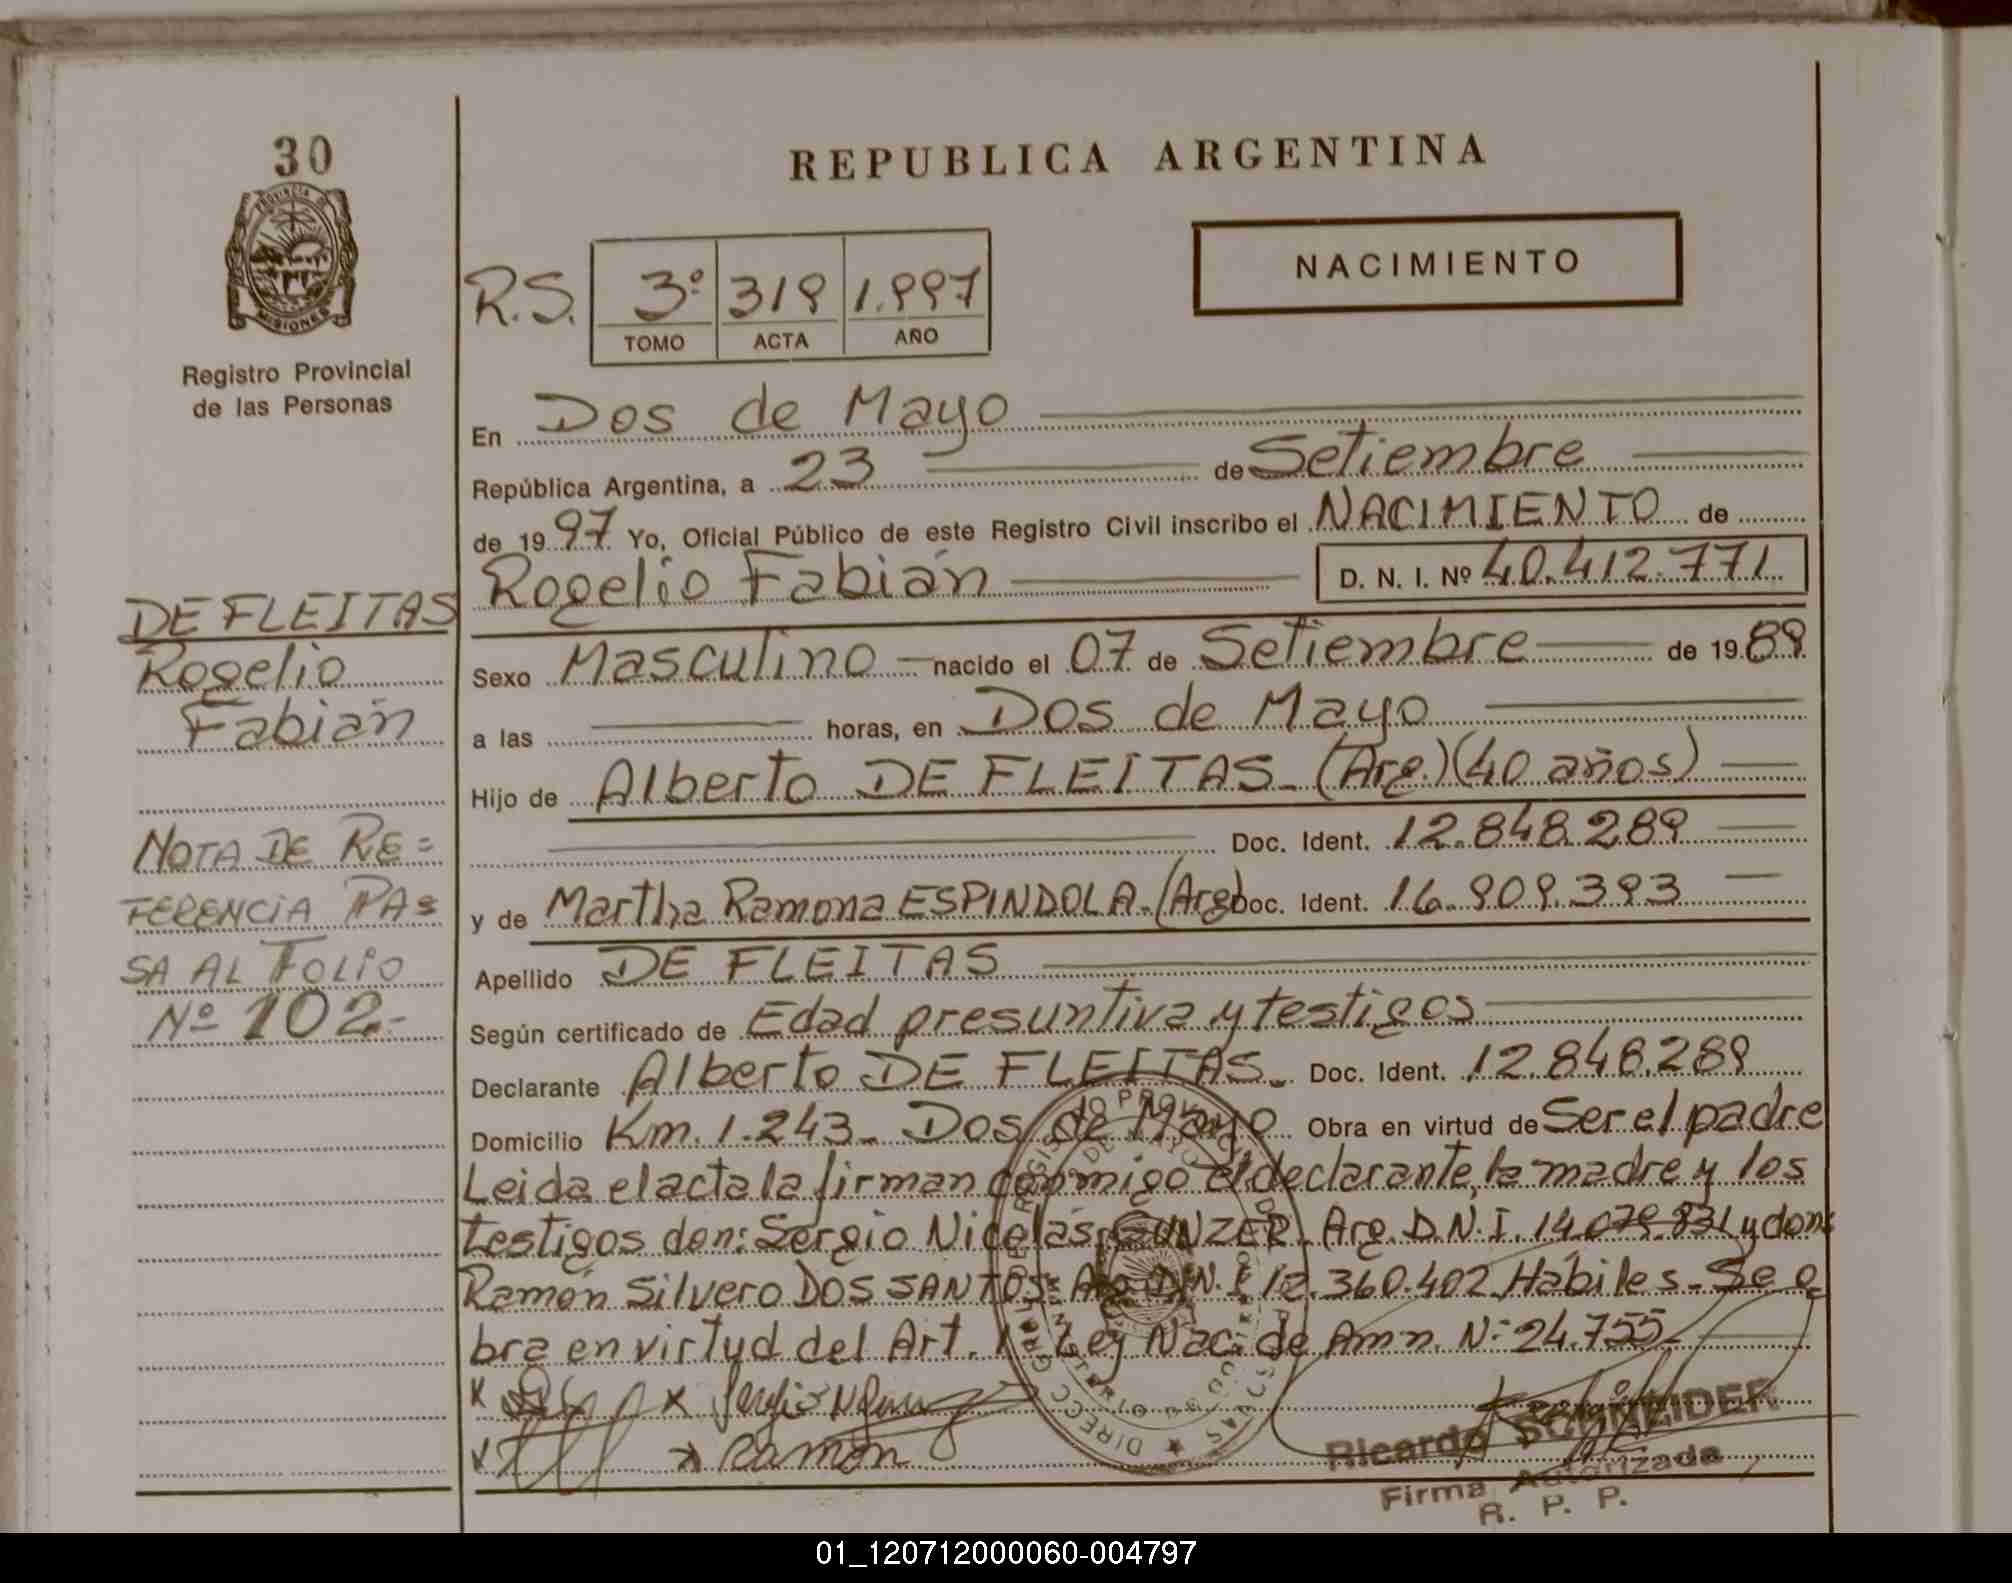 30
PROVINCIA DE
MISIONES
Registro Provincial
de las Personas
REPUBLICA ARGENTINA
NACIMIENTO
R.S. 3º 319 1.997
TOMO ACTA AÑO
En Dos de Mayo
República Argentina, a 23 de Setiembre
de 1997 Yo, Oficial Público de este Registro Civil inscribo el NACIMIENTO de
Rogelio Fabián D. N. I. Nº 40.412.771
DE FLEITAS
Rogelio
Fabián
Sexo Masculino nacido el 07 de Setiembre de 1989
a las horas, en Dos de Mayo
Hijo de Alberto DE FLEITAS (Arg.) (40 años)
Doc. Ident. 12.848.289
y de Martha Ramona ESPINDOLA (Arg) Doc. Ident. 16.909.393
NOTA DE RE=
FERENCIA PA=
SA AL FOLIO
Nº 102-
Apellido DE FLEITAS
Según certificado de Edad presuntiva y testigos
Declarante Alberto DE FLEITAS Doc. Ident. 12.848.289
Domicilio Km. 1.243 Dos de Mayo Obra en virtud de Ser el padre
Leida el acta la firman conmigo el declarante, la madre y los
testigos don: Sergio Nicolás Arg. D.N.I. 14.079.831 y don:
Ramón Silvero DOS SANTOS Arg. D.N.I. 12.360.402 Hábiles. Se o
bra en virtud del Art. 1 Ley Nac. de Amn. Nº 24.755
x x Sergio
x x Ramón
Ricardo SCHNEIDER
Firma Autorizada
R. P. P.
01_120712000060-004797